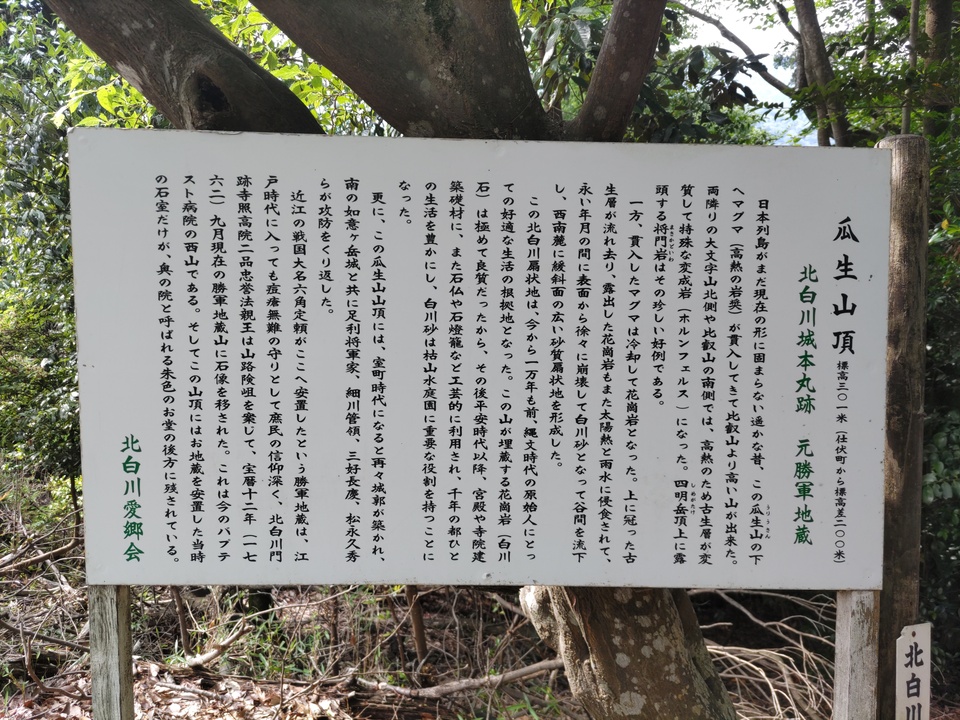 瓜生山頂 標高三〇一米（仕伏町から標高差二〇〇米）
北白川城本丸跡 元勝軍地蔵
日本列島がまだ現在の形に固まらない遥かな昔、この瓜生山の下
へマグマ（高熱の岩奬）が貫入してきて比叡山より高い山が出来た。
両隣りの大文字山北側や比叡山の南側では、高熱のため古生層が変
質して特殊な変成岩（ホルンフェルス）になった。四明岳頂上に露
頭する将門岩はその珍しい好例である。
一方、貫入したマグマは冷却して花崗岩となった。上に冠った古
生層が流れ去り、露出した花崗岩もまた太陽熱と雨水に侵食されて、
永い年月の間に表面から徐々に崩壊して白川砂となって谷間を流下
し、西南麓に緩斜面の広い砂質扇状地を形成した。
この北白川扇状地は、今から一万年も前、縄文時代の原始人にとっ
ての好適な生活の根拠地となった。この山が埋蔵する花崗岩（白川
石）は極めて良質だったから、その後平安時代以降、宮殿や寺院建
築礎材に、また石仏や石燈籠など工芸的に利用され、千年の都ひと
の生活を豊かにし、白川砂は枯山水庭園に重要な役割を持つことに
なった。
更に、この瓜生山山頂には、室町時代になると再々城郭が築かれ、
南の如意ヶ岳城と共に足利将軍家、細川管領、三好長慶、松永久秀
らが攻防をくり返した。
近江の戦国大名六角定頼がここへ安置したという勝軍地蔵は、江
戸時代に入っても痘瘡無難の守りとして庶民の信仰深く、北白川門
跡寺照高院二品忠誉法親王は山路険岨を案じて、宝暦十二年（一七
六二）九月現在の勝軍地蔵山に石像を移された。これは今のバプテ
スト病院の西山である。そしてこの山頂にはお地蔵を安置した当時
の石室だけが、奥の院と呼ばれる朱色のお堂の後方に残されている。
北白川愛郷会
北白川